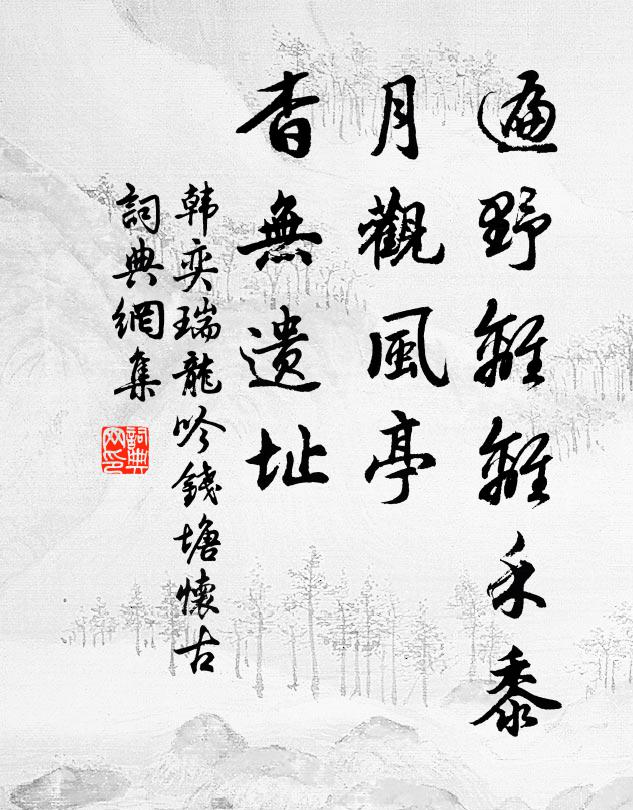 遍野離離禾黍
月觀風亭
杳無遺址
韩奕瑞龍吟錢塘懷古
詞典網集
詞典网印